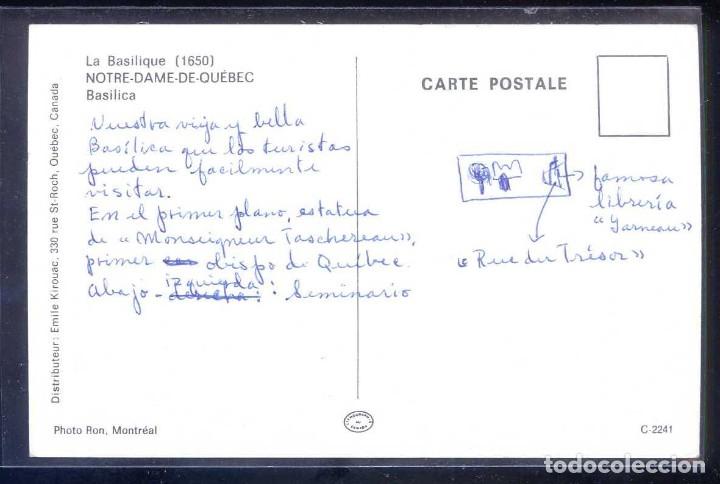 La Basilique (1650)
NOTRE-DAME-DE-QUÉBEC
Basilica
CARTE POSTALE
Nuestra vieja y bella
Basílica que los turistas
pueden facilmente
visitar.
En el primer plano, estatua
de "Monseigneur Taschereau",
primer obispo de Québec.
Abajo - izquierda : Seminario
famosa
librería
"Garneau"
"Rue du Trésor"
Distributeur: Emile Kirouac, 330 rue St-Roch, Québec, Canada
Photo Ron, Montréal
C-2241
todocoleccion